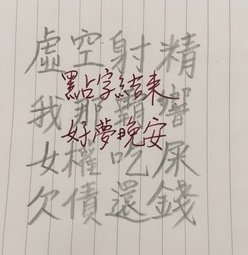 虛空射精
點字結束
我那霸響
好夢晚安
女權吃屎
欠債還錢